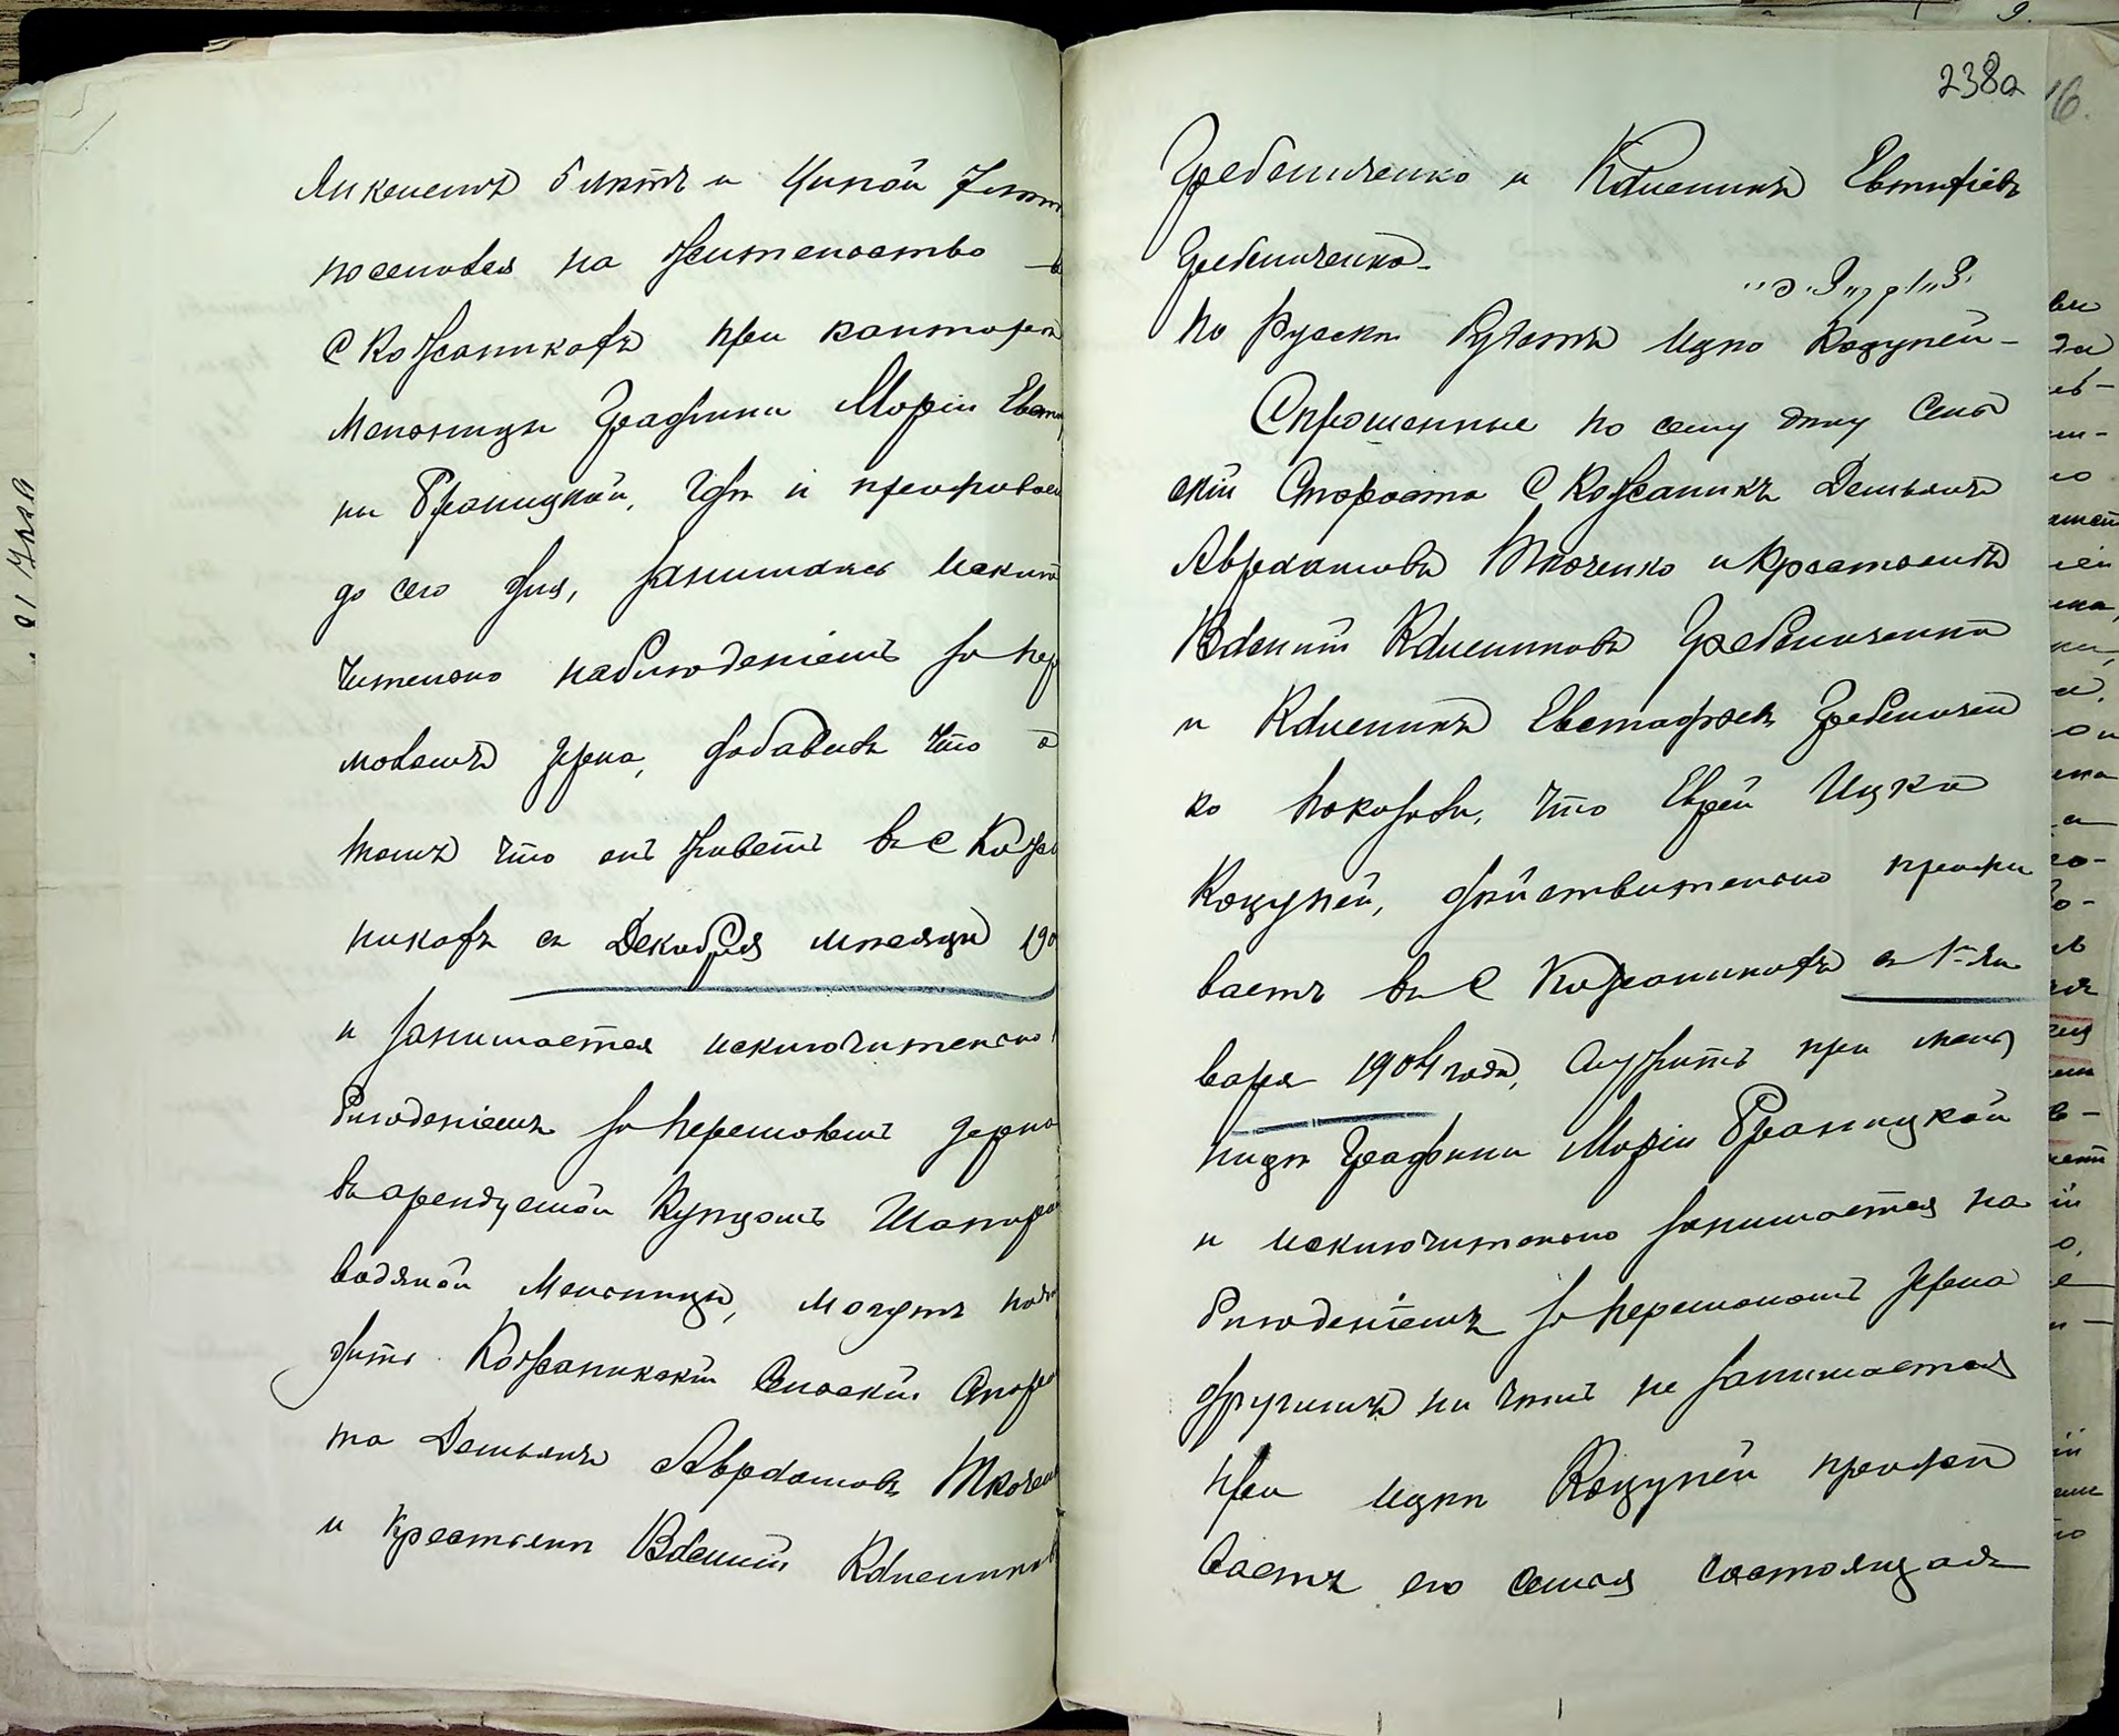 Янкелемъ 5 лѣтъ и Ципой 7 лѣтъ
поселился на жительство в
с Кожанкахъ при конторѣ
Мельницы Графини Маріи Евст
ны Браницкой, гдѣ и проживаетъ
до сего дня, занимаясь исклю
чительно наблюденіемъ за пер
моломъ зерна, добавивъ что о
томъ что онъ живетъ въ с Кожа
никахъ съ Декабря мѣсяца 190
и занимается исключительно
блюденіемъ за перемоломъ зерна
въ арендуемой Купцомъ Шапиро
водяной Мельницы, могутъ подтвер
дить Кожаникскій Сельскій Старос
та Демьянъ Авраамовъ Ткачен
и крестьяне Василій Климентов
238а
Гребениченко и Климентъ Евстафіевъ
Гребениченко.
По Русски будетъ Ицко Коцупей-
Спрошенные по сему дѣлу Сель
скій Староста С Кожаникъ Демьянъ
Авраамовъ Ткаченко и Крестьяне
Василій Климентовъ Гребениченко
и Климентъ Евстафіевъ Гребеничен
ко показали, что Еврей Ицко
Коцупей, дѣйствительно прожи
ваетъ въ С Кожаникахъ съ 1-го Ян
варя 1904 года, служитъ при мель
ницѣ Графини Маріи Браницкой
и исключительно занимается на
блюденіемъ за перемоломъ зерна
другимъ ни чемъ не занимается
При Ицкѣ Коцупей прожи
ваетъ его семья состоящая